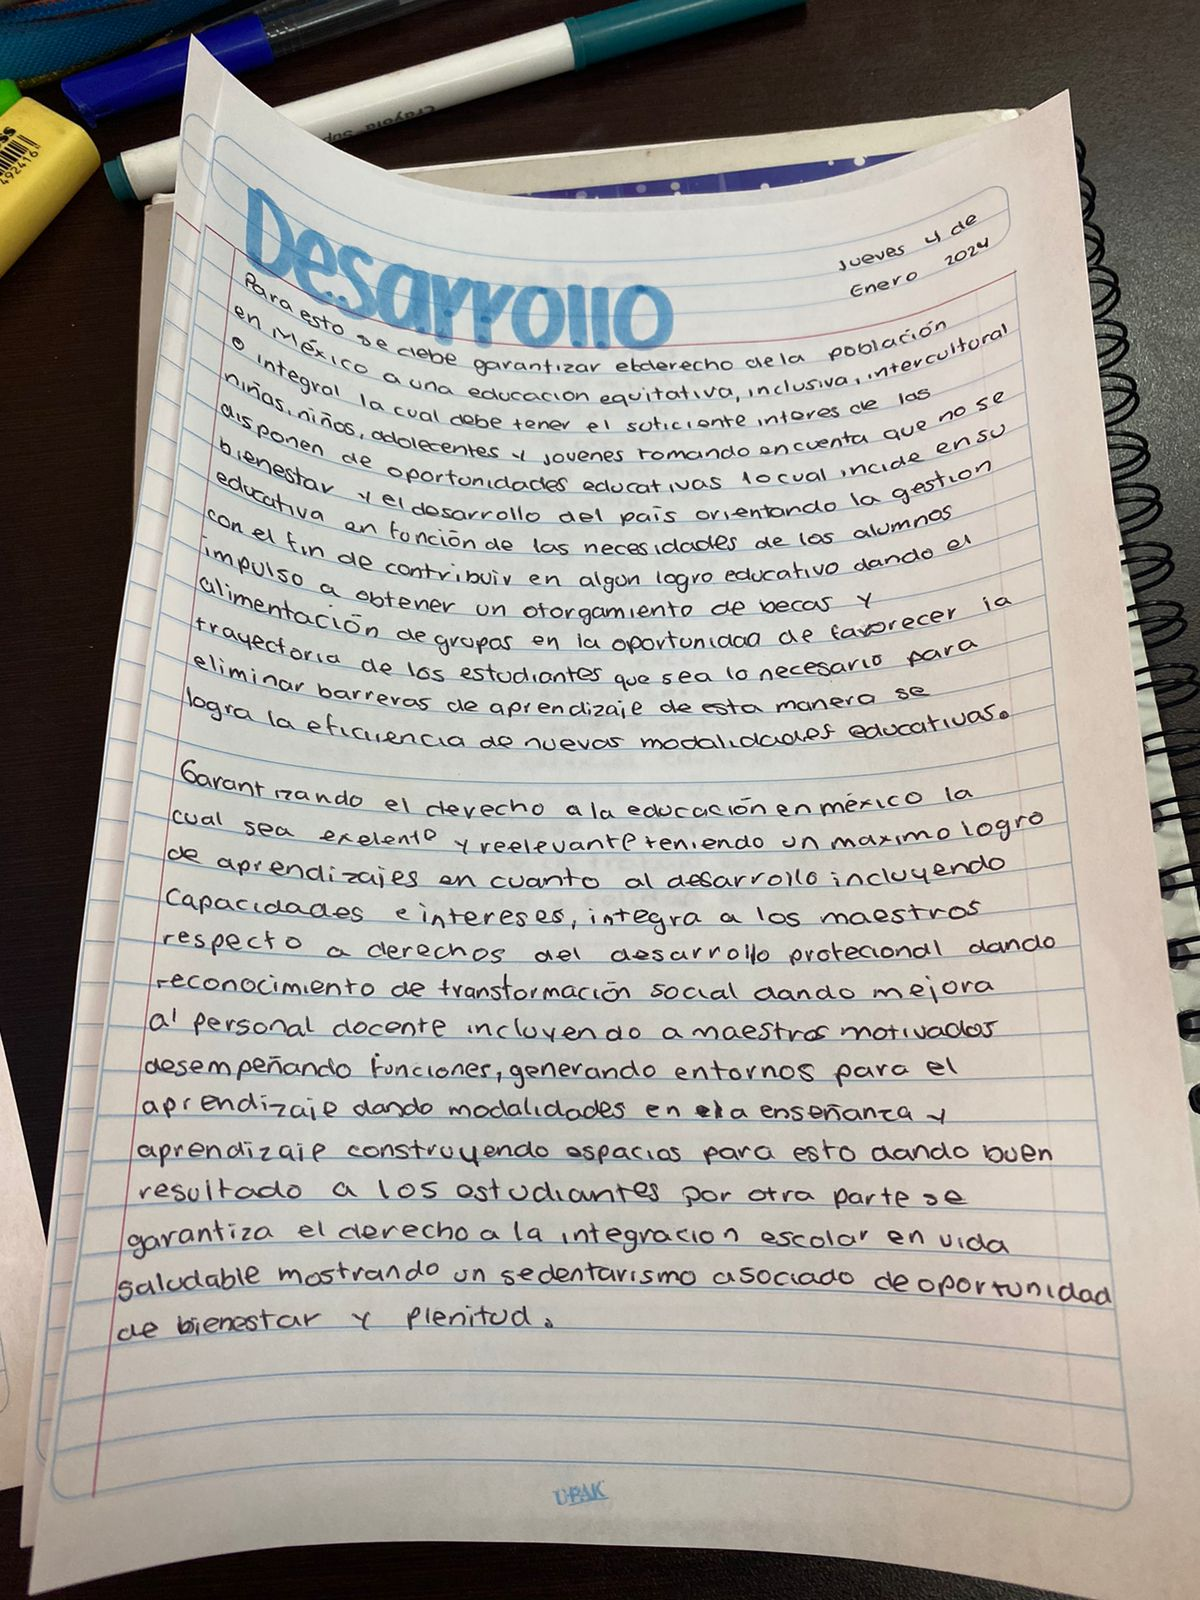 ss
492416
Crayola Sup
Desarrollo
Jueves 4 de
Enero 2024
Para esto se debe garantizar el derecho de la población
en México a una educacion equitativa, inclusiva, intercultural
e integral la cual debe tener el suficiente interes de las
niñas, niños, adolecentes y jovenes tomando en cuenta que no se
disponen de oportunidades educativas lo cual incide en su
bienestar y el desarrollo del país orientando la gestion
educativa en función de las necesidades de los alumnos
con el fin de contribuir en algun logro educativo dando el
impulso a obtener un otorgamiento de becas y
alimentación de grupos en la oportunidad de favorecer la
trayectoria de los estudiantes que sea lo necesario para
eliminar barreras de aprendizaje de esta manera se
logra la eficiencia de nuevas modalidades educativas.
Garantizando el derecho a la educación en méxico la
cual sea exelente y reelevante teniendo un maximo logro
de aprendizajes en cuanto al desarrollo incluyendo
Capacidades e intereses, integra a los maestros
respecto a derechos del desarrollo profecional dando
reconocimiento de transformación social dando mejora
al personal docente incluyendo a maestros motivados
desempeñando funciones, generando entornos para el
aprendizaje dando modalidades en la enseñanza y
aprendizaje construyendo espacios para esto dando buen
resultado a los estudiantes por otra parte se
garantiza el derecho a la integracion escolar en vida
saludable mostrando un sedentarismo asociado de oportunidad
de bienestar y plenitud.
U-PAK